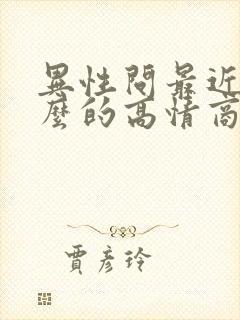 異性問最近
麼的高情商
賈彥玲